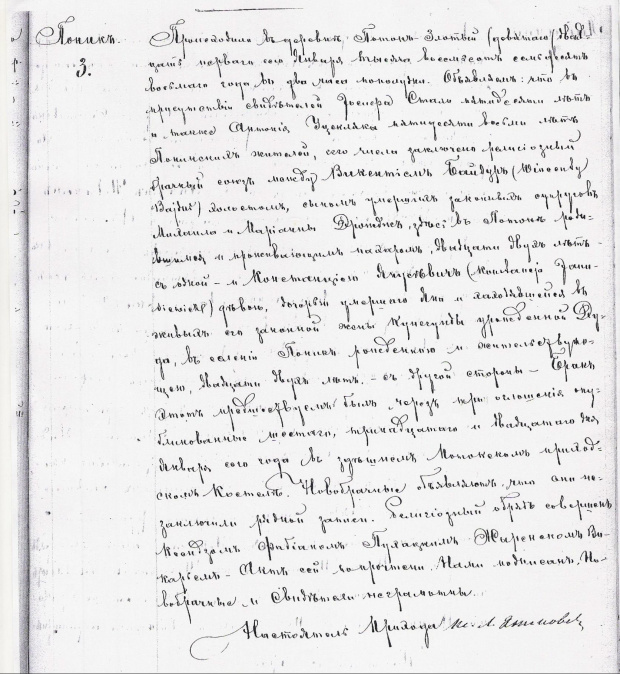 Поникъ.
3.
Происходило въ деревнѣ Потокъ-Злотый (девятаго) двад-
цать перваго сего Января тысяча восемьсотъ семьдесятъ
восьмаго года въ два часа пополудни. Объявляемъ: что въ
присутствіи свидѣтелей Іосефа Стало пятидесяти лѣтъ
и также Антонія пятидесяти восьми лѣтъ
жителей, сего числа заключенъ религіозный
брачный союзъ между Викентіемъ Байдуръ (Wincenty
Bajdur) холостомъ, сыномъ умершихъ законныхъ супруговъ
Михаила и Маріанны здѣсь въ Потокѣ роди-
вшимся и проживающимъ пахаромъ, двадцати двухъ лѣтъ
съ одной - и Констанціею Янусевичъ (Konstancją Janu-
siewicz) дѣвою, дочерью умершаго Яна и находящейся въ
живыхъ его законной жены Кунегунды урожденной Ду-
да, въ селеніи Поникъ рожденною и жительствую-
щею, двадцати двухъ лѣтъ - съ другой стороны - Бракъ
этотъ предшествуемъ былъ черезъ три оглашенія опу-
бликованные шестаго, тринадцатаго и двадцатаго дня
Января сего года въ здѣшнемъ Потокскомъ приход-
скомъ Костелѣ. Новобрачные объявляютъ, что они не-
заключили рядной записи. Религіозный обрядъ совершенъ
Ксендзомъ Фабіаномъ Ви-
каріемъ - Актъ сей по прочтеніи, Нами подписанъ, Но-
вобрачные и Свидѣтели неграмотны.
Настоятель Прихода Кс. Л.